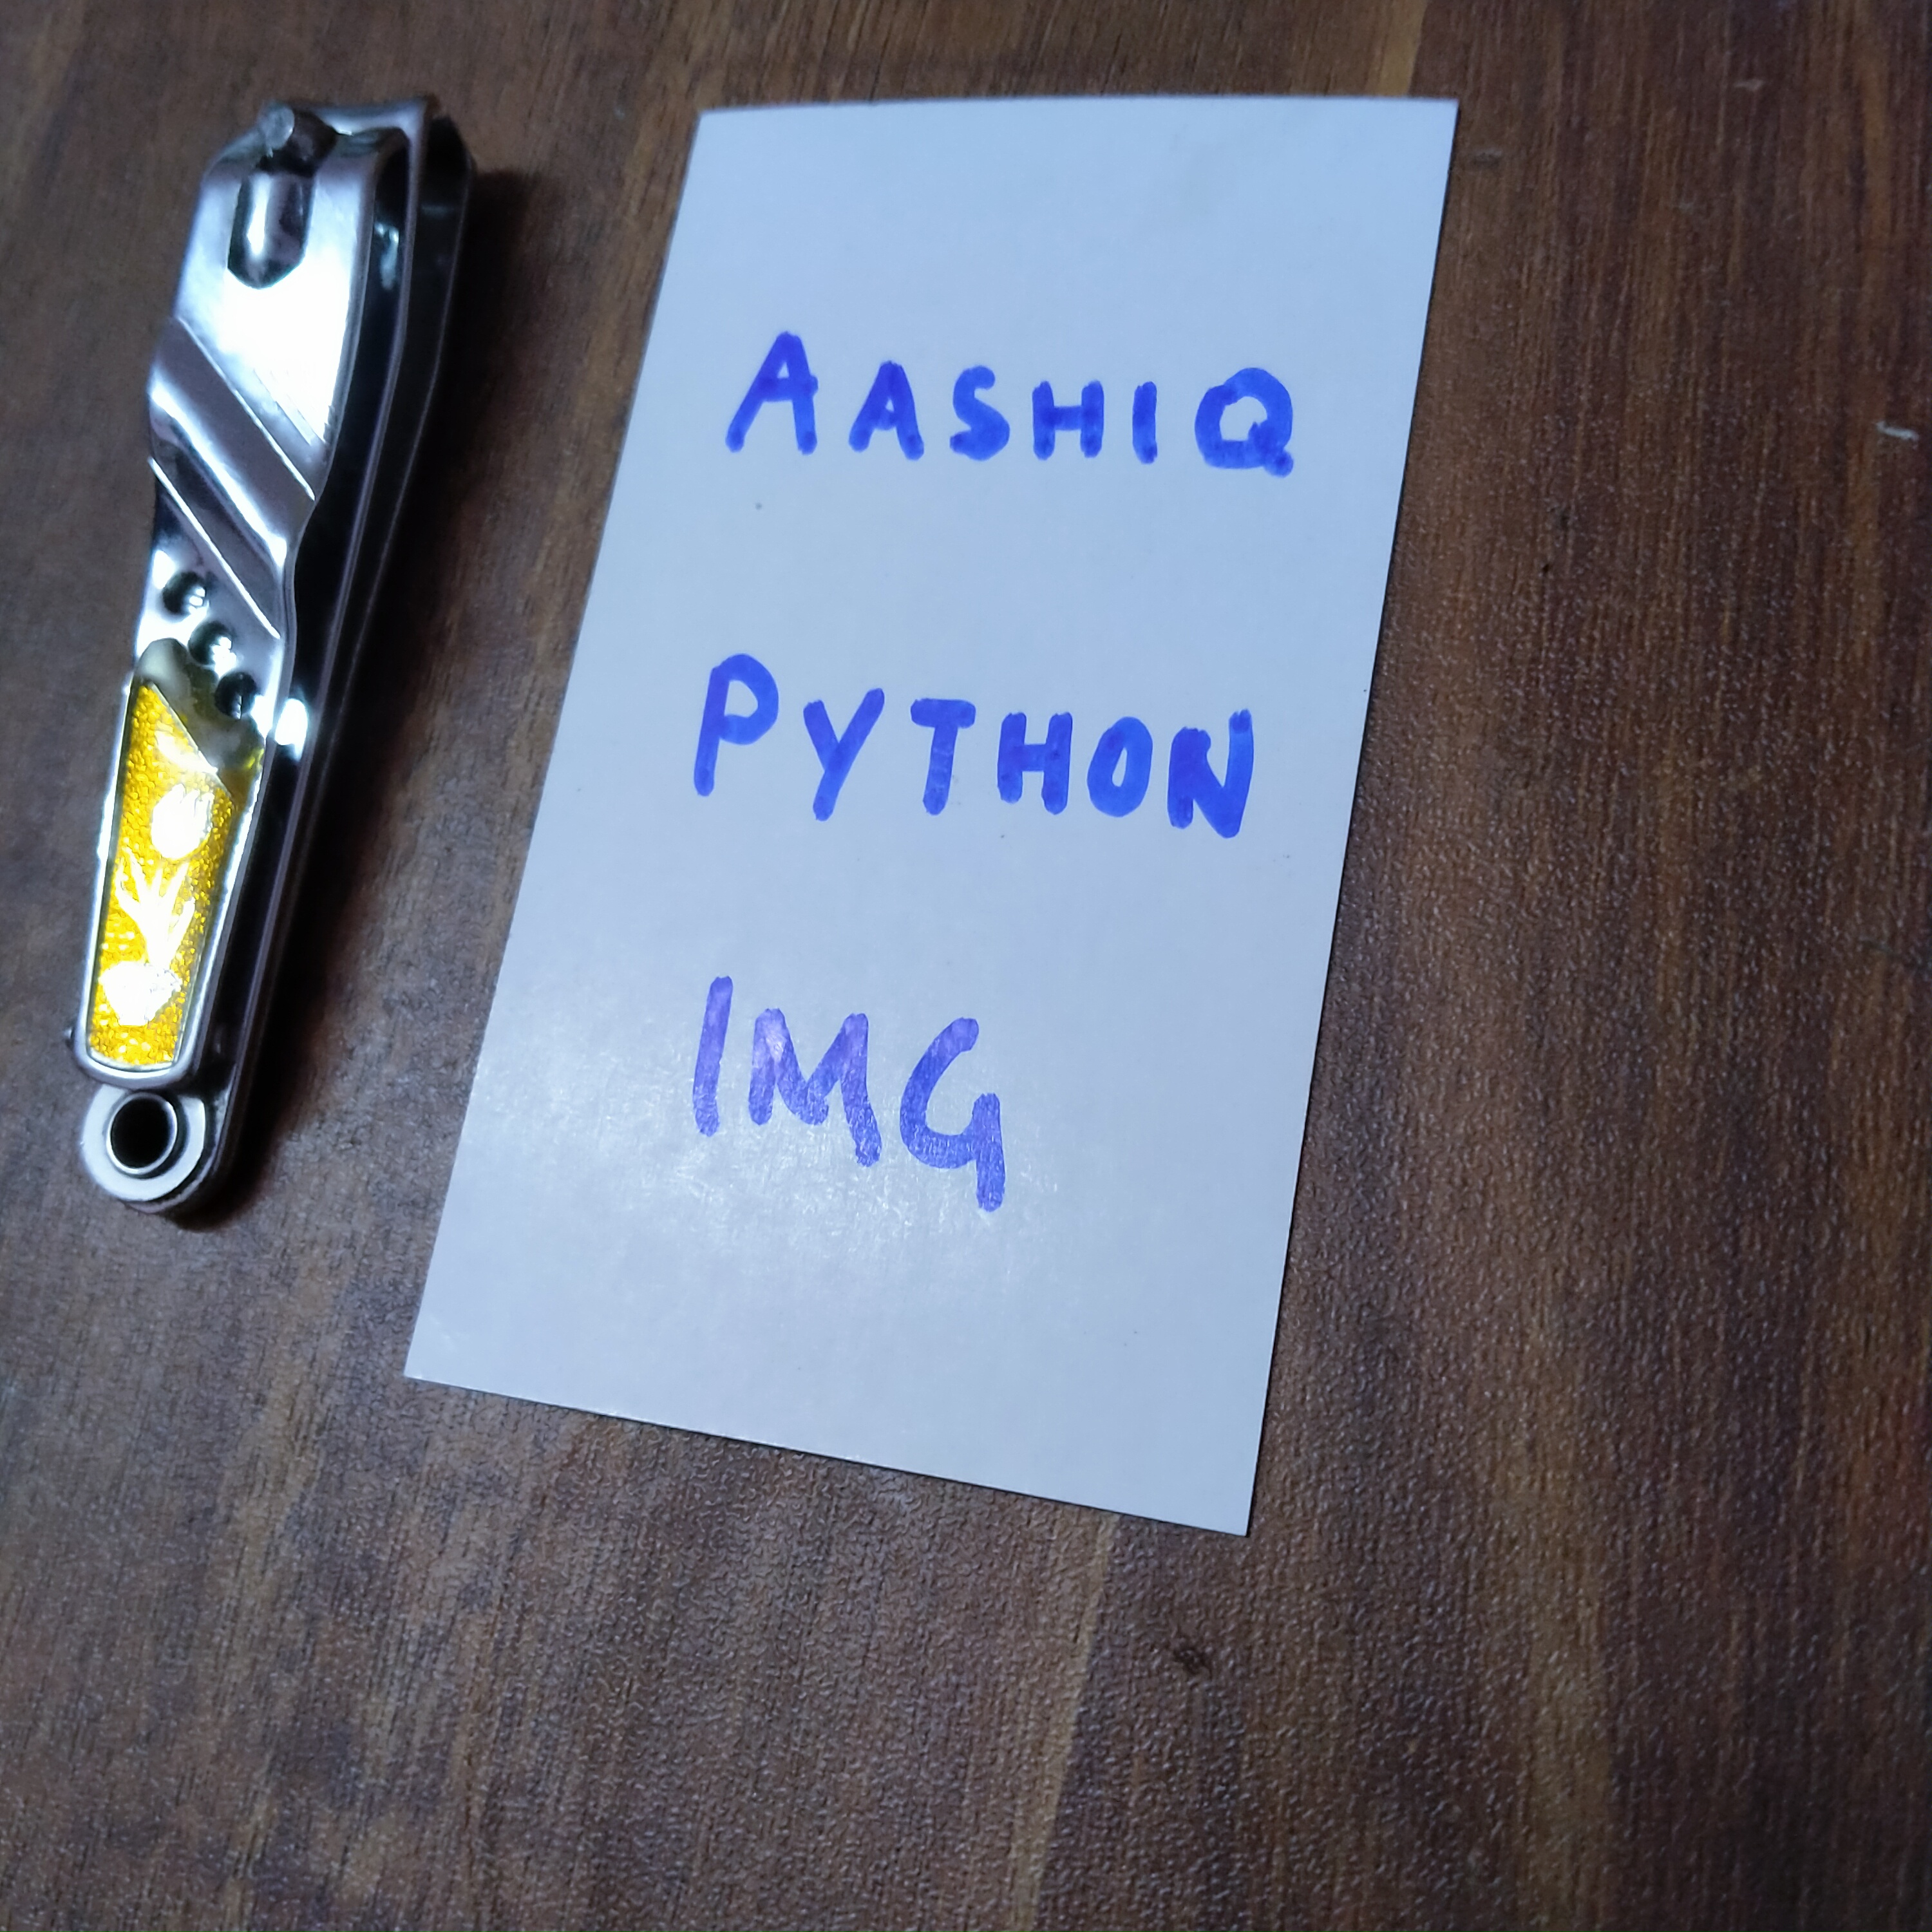 AASHIQ
PYTHON
IMG